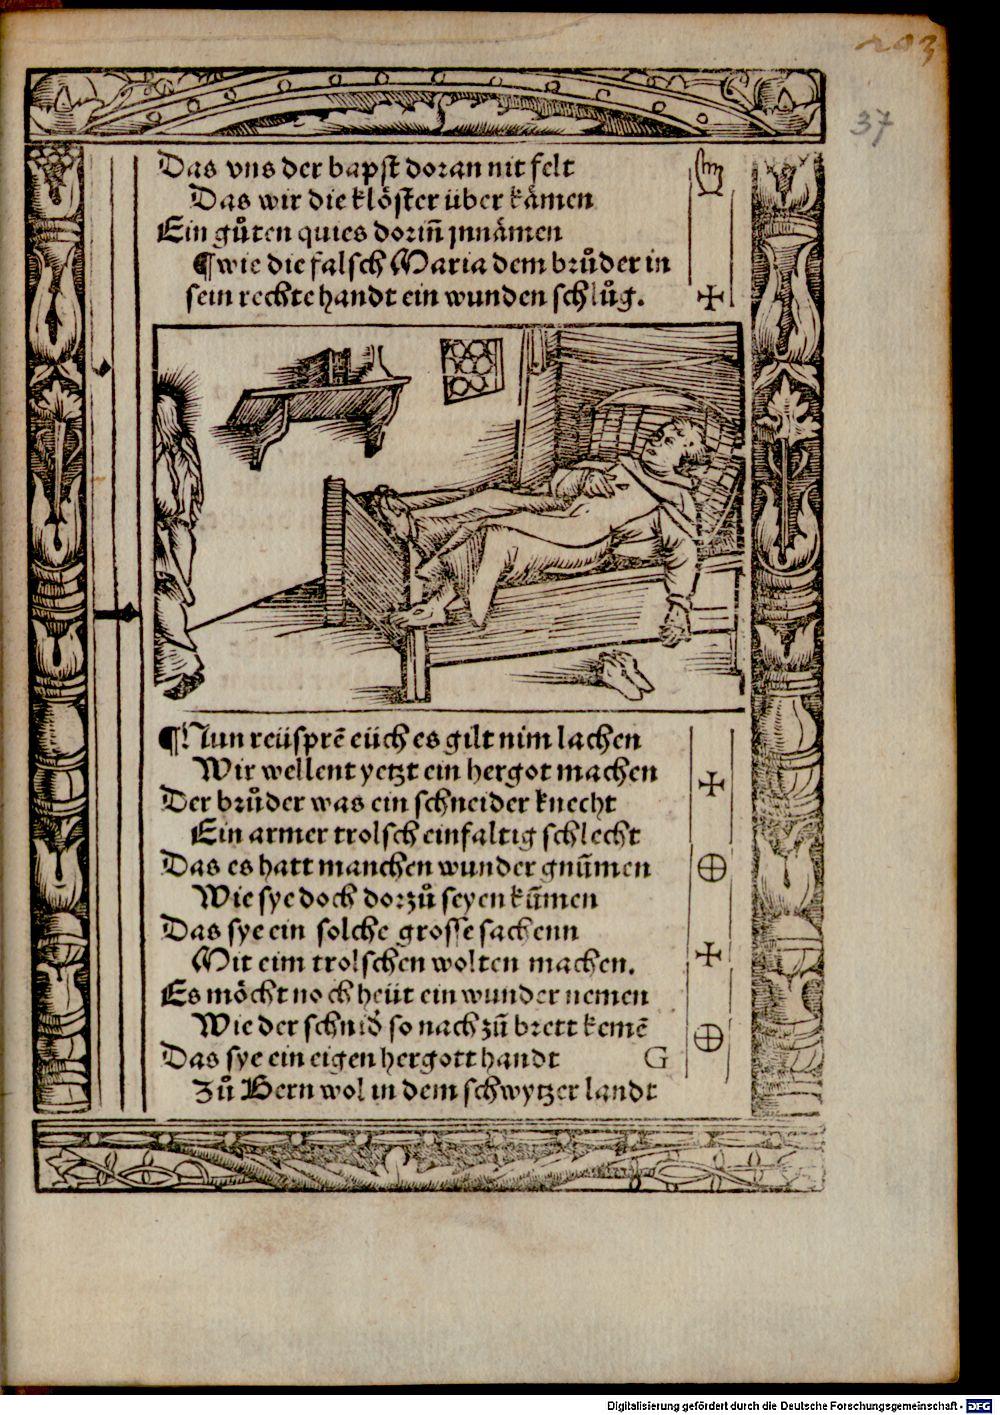 203
37
Das vns der bapst doran nit felt
Das wir die klöster über kämen
Ein gůten quies dorin̄ jnnämen
¶wie die falsch Maria dem brůder in
sein rechte handt ein wunden schlůg.
¶Nun reüsprē eüch es gilt nim lachen
Wir wellent yetzt ein hergot machen
Der brůder was ein schneider knecht
Ein armer trolsch einfaltig schlecht
Das es hatt manchen wunder gnum̄en
Wie sye doch dorzů seyen kum̄en
Das sye ein solche grosse sachenn
Mit eim trolschen wolten machen.
Es möcht noch heüt ein wunder nemen
Wie der schnid so nach zů brett kemē
Das sye ein eigen hergott handt
G
Zů Bern wol in dem schwytzer landt
Digitalisierung gefördert durch die Deutsche Forschungsgemeinschaft - DFG